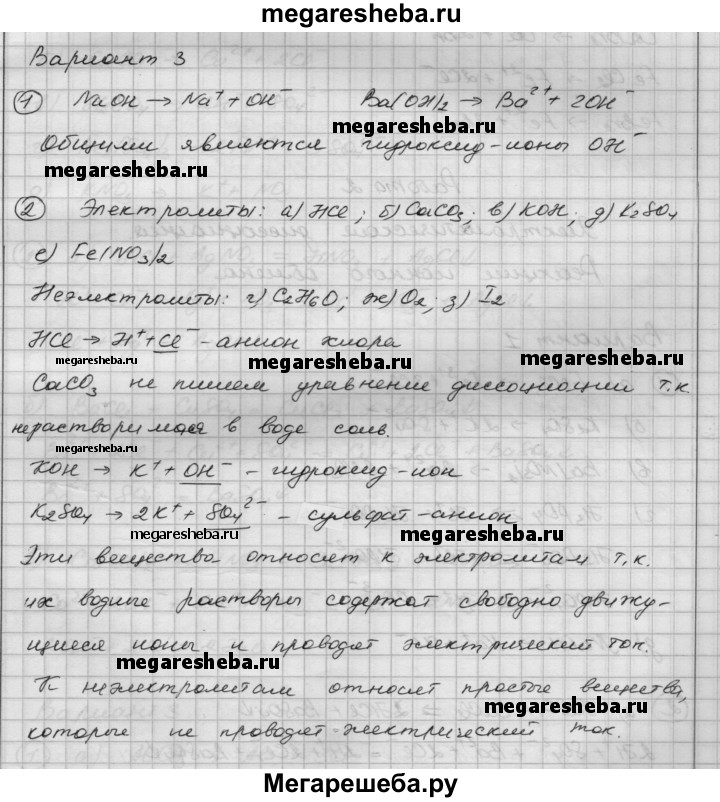 megaresheba.ru
Вариант 3
1 NaOH → Na⁺ + OH⁻ Ba(OH)₂ → Ba²⁺ + 2OH⁻
megaresheba.ru
Общими являются гидроксид-ионы OH⁻
megaresheba.ru megaresheba.ru
2 Электролиты: а) HCl; б) CaCO₃; в) KOH; д) K₂SO₄
е) Fe(NO₃)₂
Неэлектролиты: г) C₂H₆O; ж) O₂; з) I₂
HCl → H⁺ + Cl⁻ - анион хлора
megaresheba.ru megaresheba.ru megaresheba.ru
CaCO₃ не пишем уравнение диссоциации т.к.
нерастворимая в воде соль.
megaresheba.ru
KOH → K⁺ + OH⁻ - гидроксид-ион
K₂SO₄ → 2K⁺ + SO₄²⁻ - сульфат-анион
megaresheba.ru megaresheba.ru
Эти вещества относят к электролитам т.к.
их водные растворы содержат свободно движу-
щиеся ионы и проводят электрический ток.
megaresheba.ru
К неэлектролитам относят простые вещества,
megaresheba.ru
которые не проводят электрический ток.
megaresheba.ru
Мегарешеба.ру